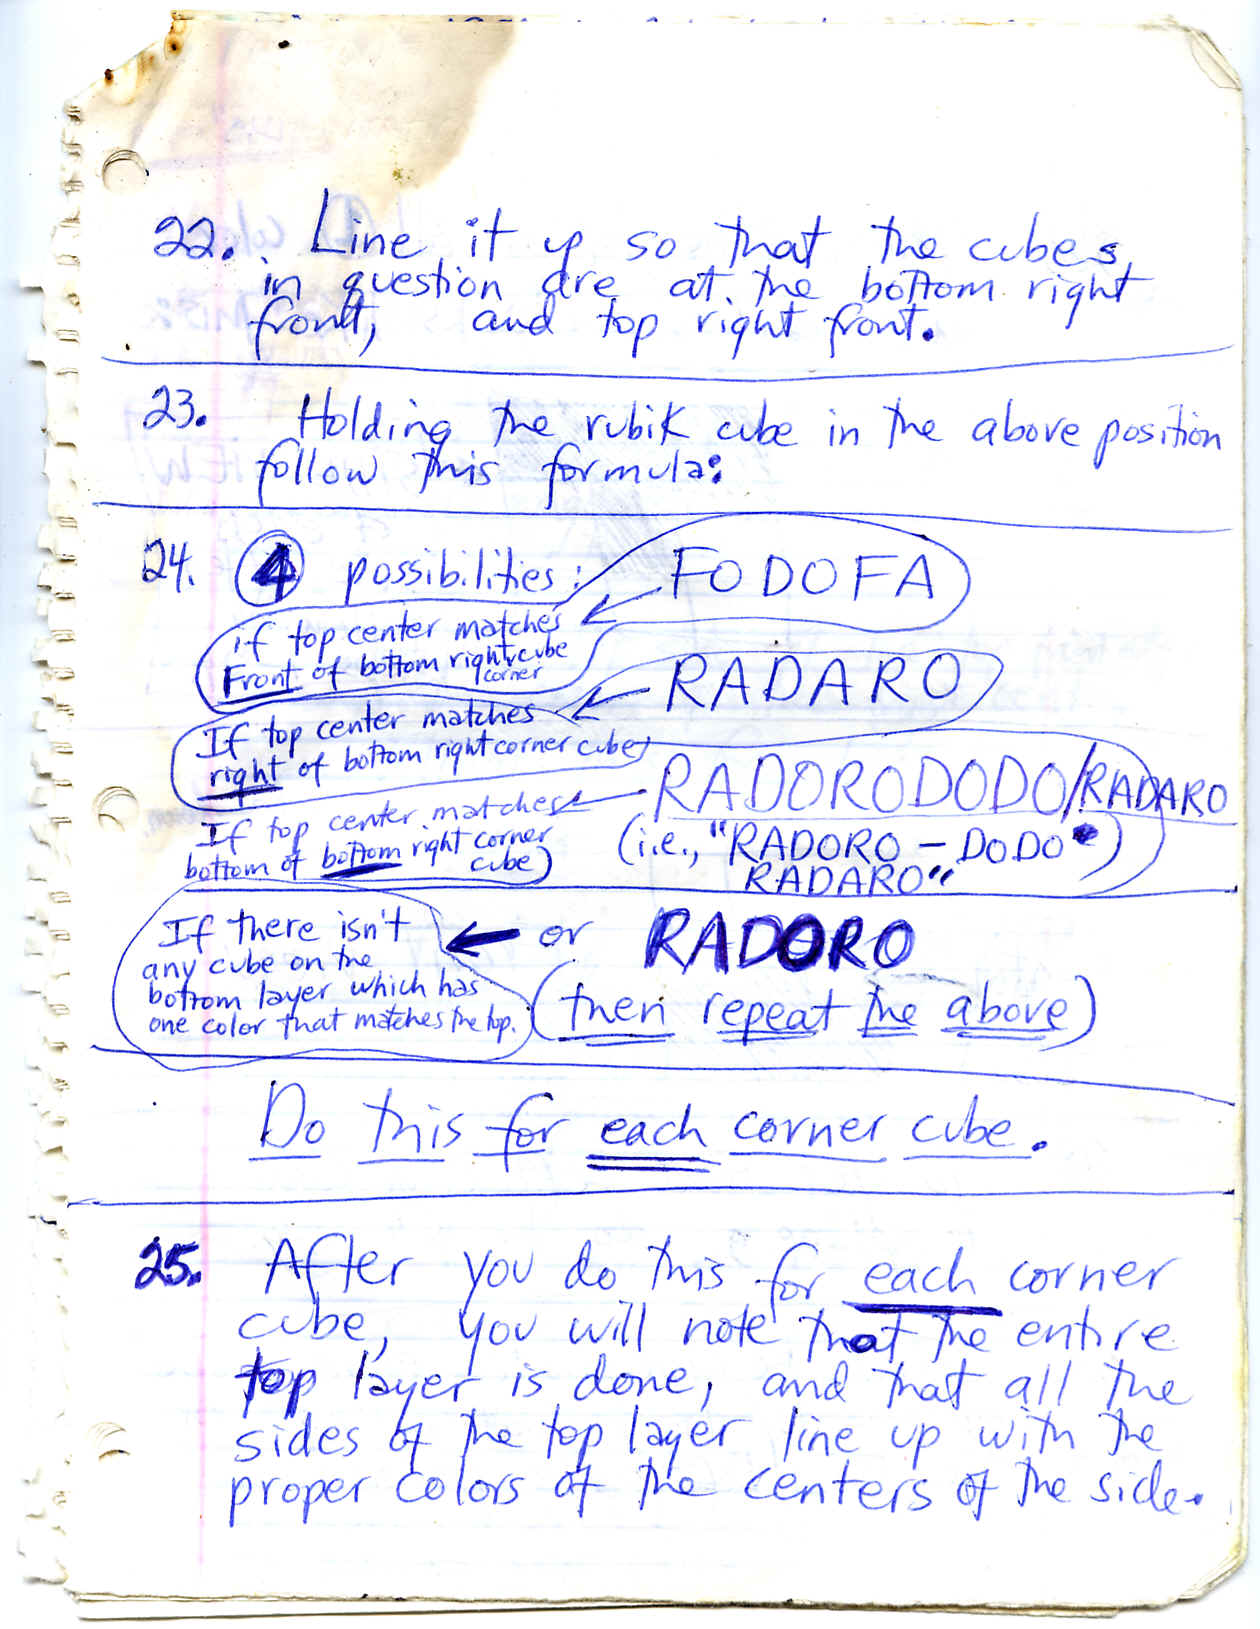 22. Line it up so that the cubes
in question are at the bottom right
front, and top right front.
23. Holding the rubik cube in the above position
follow this formula:
24. 4 possibilities: FODOFA
if top center matches
Front of bottom right cube
corner
RADARO
If top center matches
right of bottom right corner cube
RADORODODO/RADARO
If top center matches
bottom of bottom right corner
cube)
(i.e., "RADORO - DODO")
RADARO"
If there isn't
any cube on the
bottom layer which has
one color that matches the top.
or RADORO
(then repeat the above)
Do this for each corner cube.
25. After you do this for each corner
cube, you will note that the entire
top layer is done, and that all the
sides of the top layer line up with the
proper colors of the centers of the side.